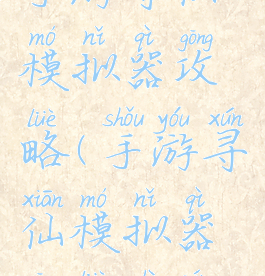 mó nǐ qì gōng
模拟器攻
lüè shǒu yóu xún
略(手游寻
xiān mó nǐ qì
仙模拟器